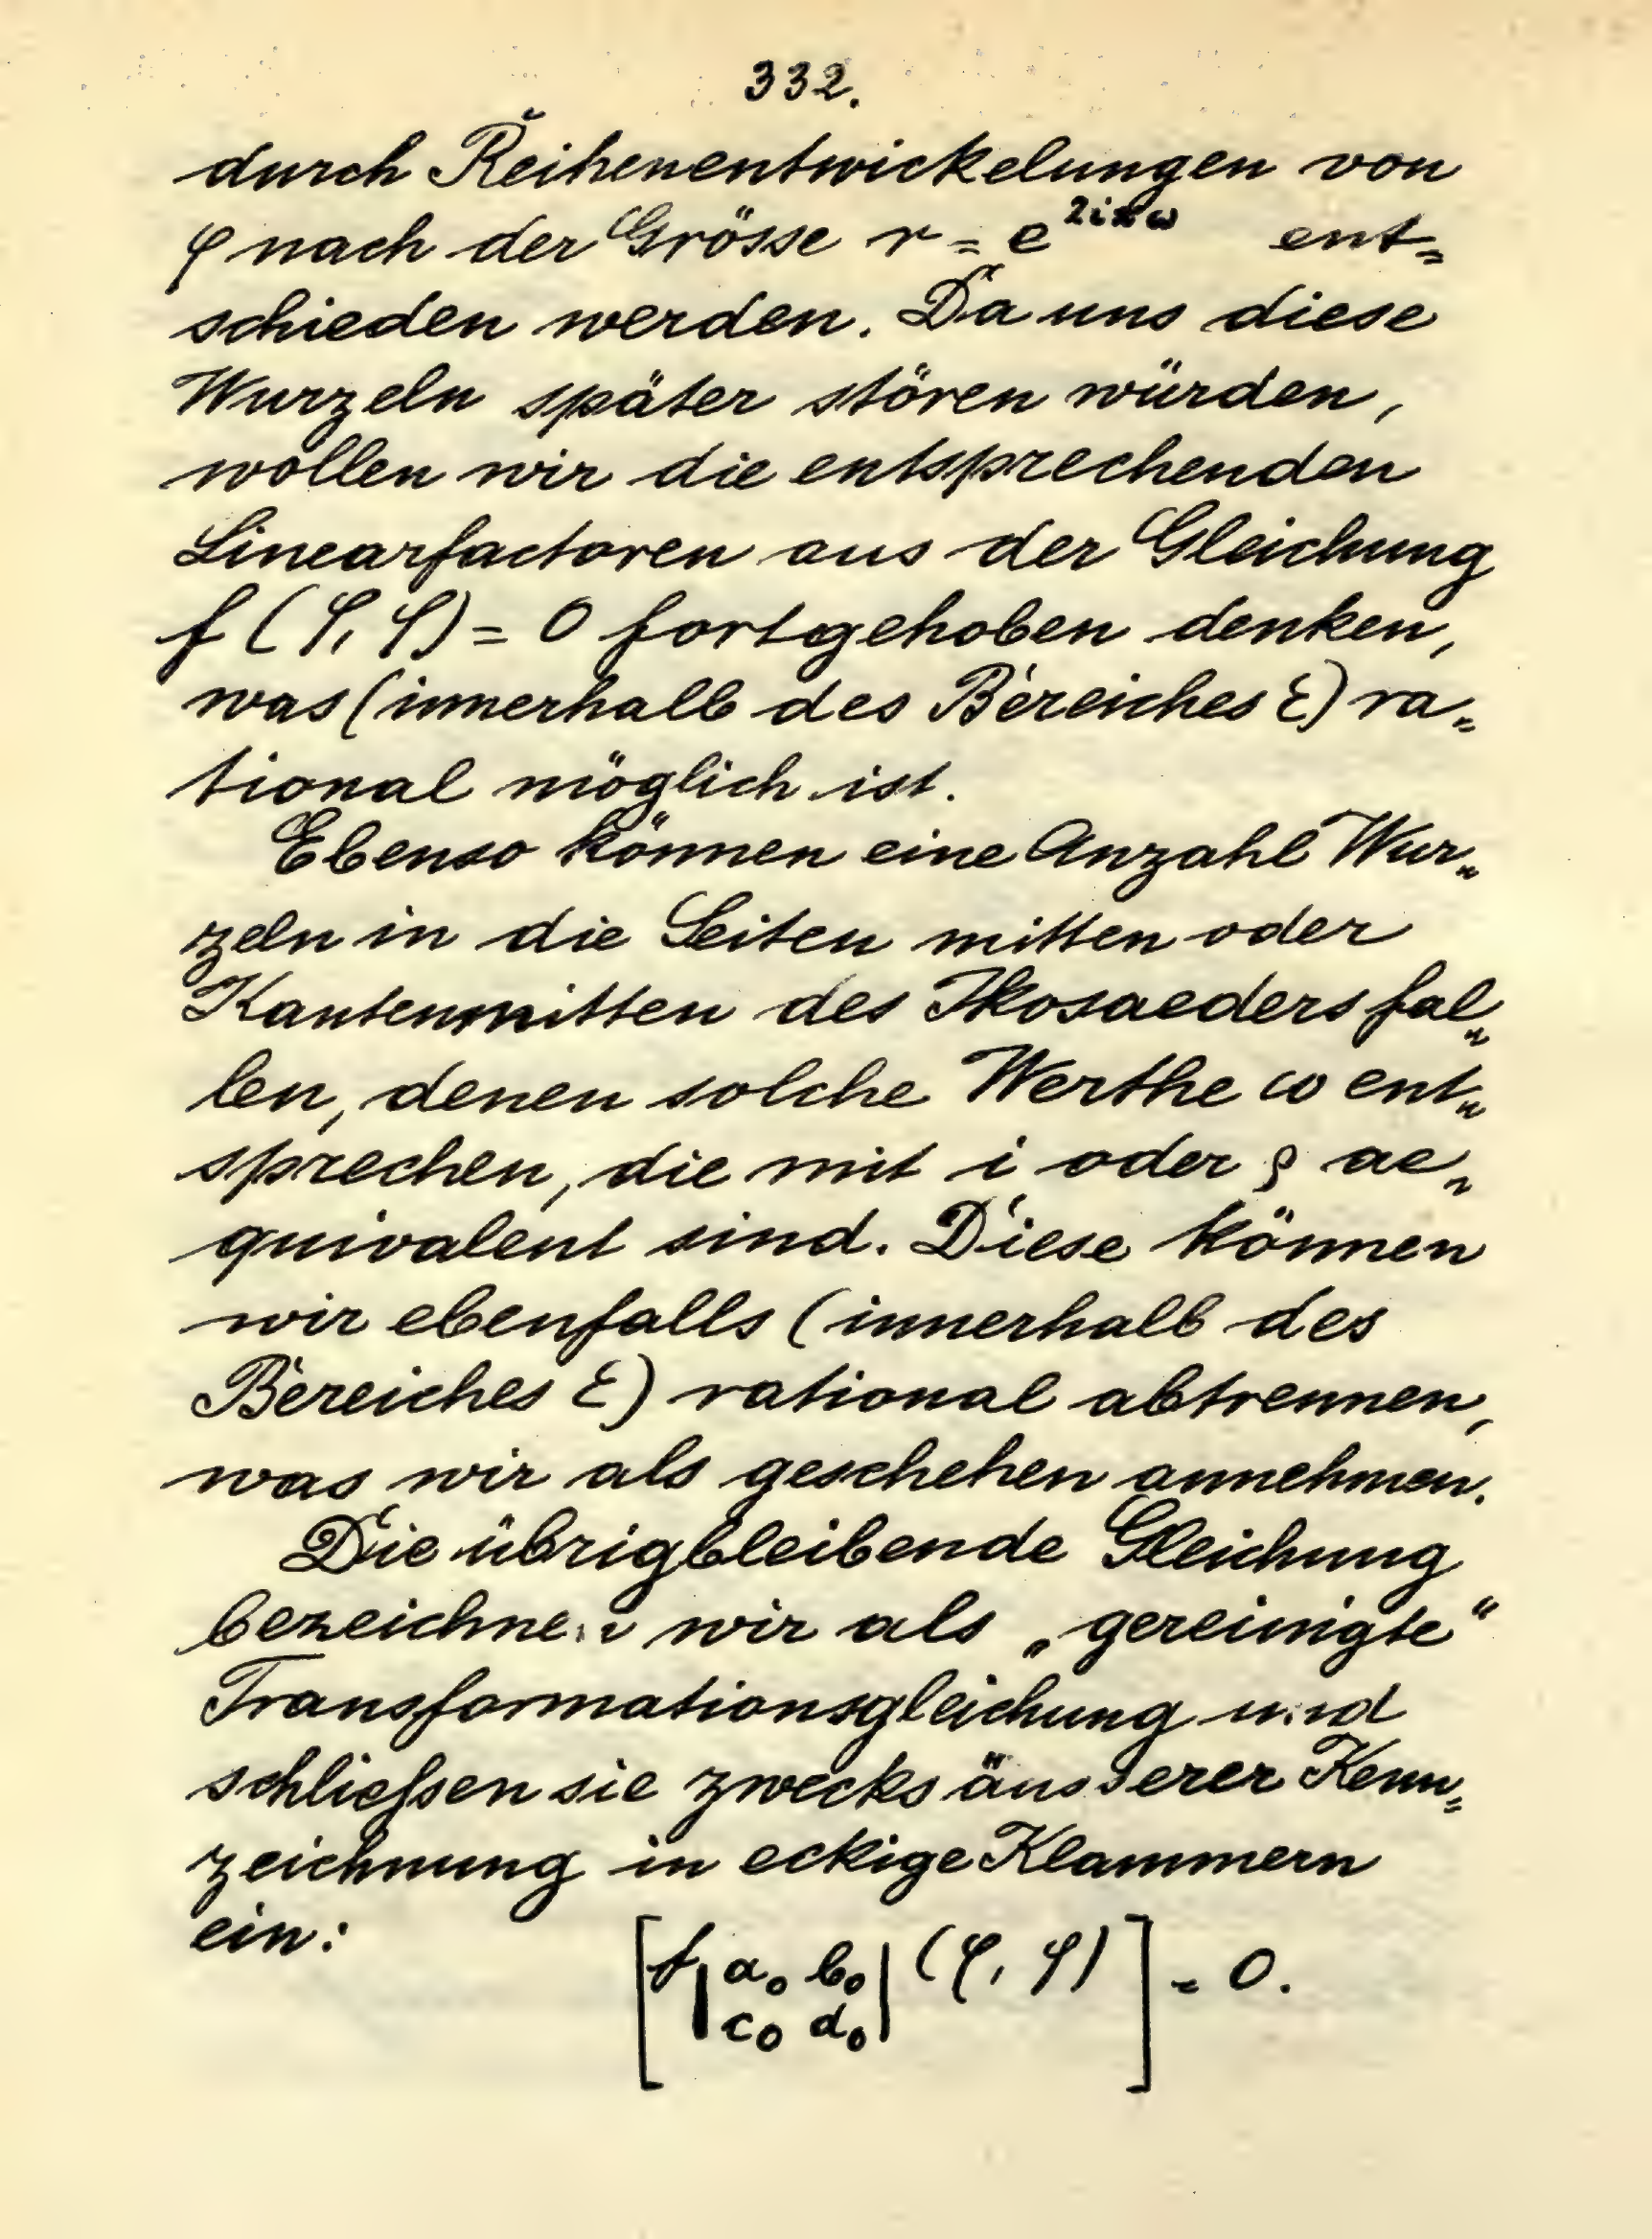 332.
durch Reihenentwickelungen von
φ nach der Grösse r = e^{2iπω} ent=
schieden werden. Da uns diese
Wurzeln später stören würden,
wollen wir die entsprechenden
Linearfactoren aus der Gleichung
f (φ, φ) = 0 fortgehoben denken,
was (innerhalb des Bereiches ε) ra=
tional möglich ist.
Ebenso können eine Anzahl Wur=
zeln in die Seiten mitten oder
Kantenmitten des Ikosaeders fal=
len, denen solche Werthe ω ent=
sprechen, die mit i oder ρ ae=
quivalent sind. Diese können
wir ebenfalls (innerhalb des
Bereiches ε) rational abtrennen,
was wir als geschehen annehmen.
Die übrigbleibende Gleichung
bezeichnen wir als „gereinigte“
Transformationsgleichung und
schließen sie zwecks äusserer Kenn=
zeichnung in eckige Klammern
ein: [f |a₀ b₀| (φ, φ)] = 0.
c₀ d₀